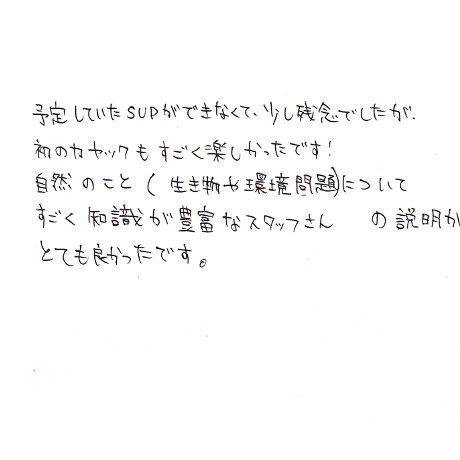 予定していたSUPができなくて、少し残念でしたが、
初のカヤックもすごく楽しかったです!
自然のこと(生き物や環境問題)について
すごく知識が豊富なスタッフさん の説明が
とても良かったです。